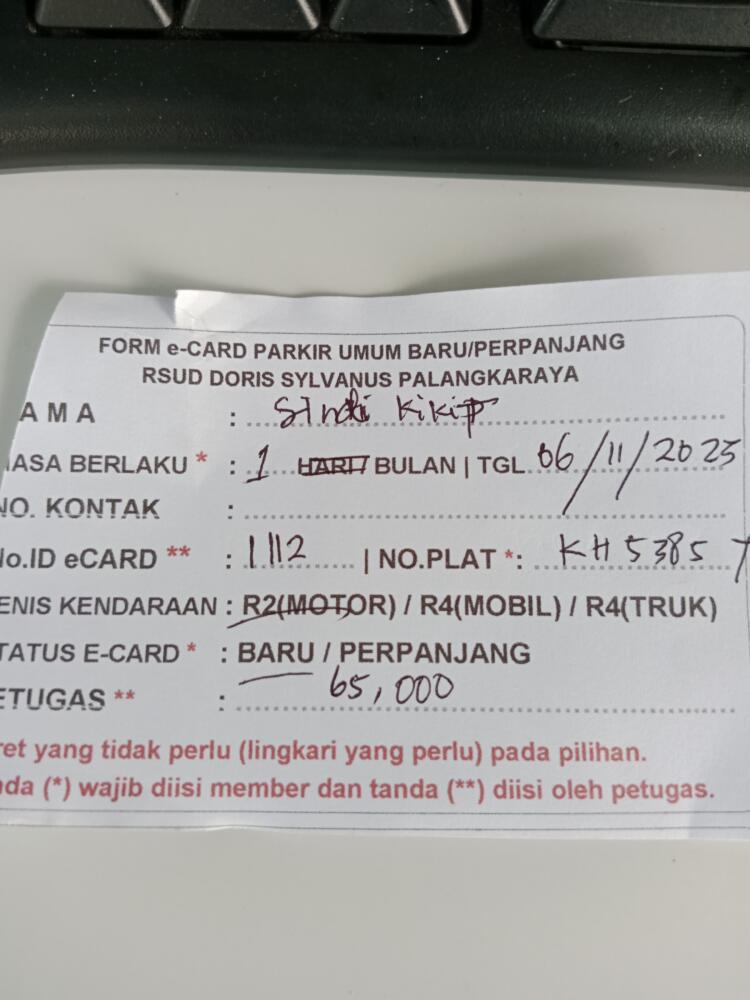 FORM e-CARD PARKIR UMUM BARU/PERPANJANG
RSUD DORIS SYLVANUS PALANGKARAYA
AMA : Sindi Kikit
ASA BERLAKU * : 1 HARI / BULAN | TGL. 06/11/2025
NO. KONTAK :
No.ID eCARD ** : 1112 | NO.PLAT *: KH 5385 Y
ENIS KENDARAAN : R2(MOTOR) / R4(MOBIL) / R4(TRUK)
TATUS E-CARD * : BARU / PERPANJANG
ETUGAS ** : 65,000
ret yang tidak perlu (lingkari yang perlu) pada pilihan.
nda (*) wajib diisi member dan tanda (**) diisi oleh petugas.